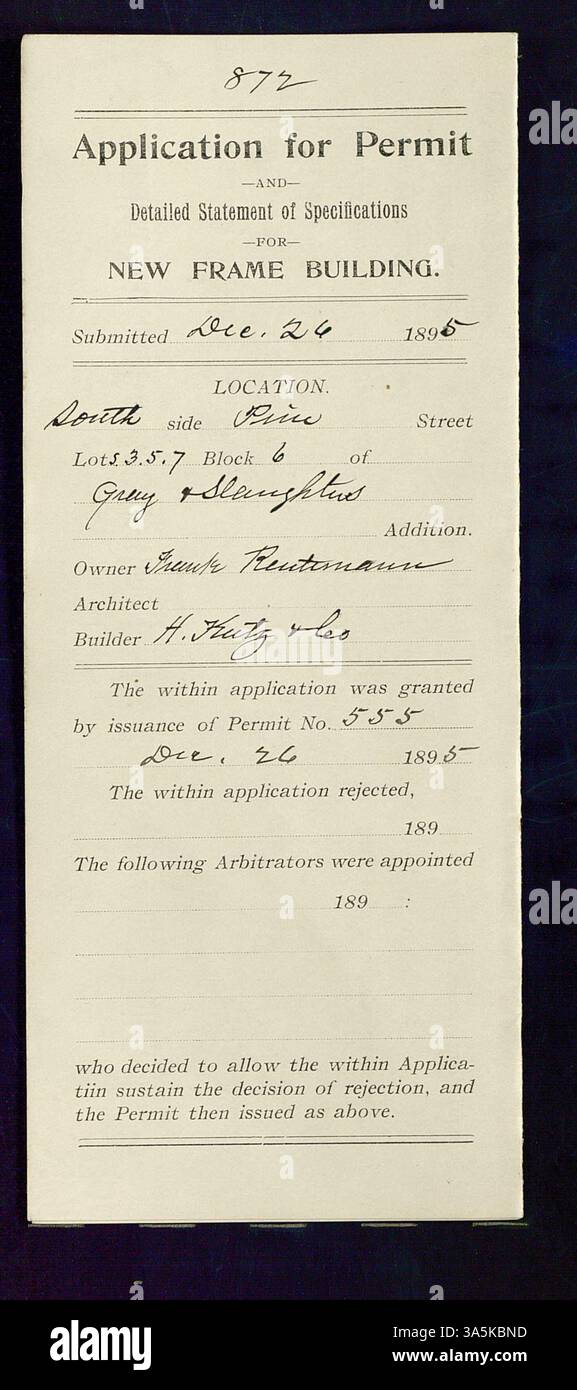 872
Application for Permit
—AND—
Detailed Statement of Specifications
—FOR—
NEW FRAME BUILDING.
Submitted Dec. 26 1895
LOCATION.
South side Pine Street
Lots 3.5.7 Block 6 of
Gray & Slaughters
Addition.
Owner Frank
Architect
Builder H. & Co
The within application was granted
by issuance of Permit No. 555
Dec. 26 1895
The within application rejected,
189
The following Arbitrators were appointed
189 :
who decided to allow the within Applica-
tiin sustain the decision of rejection, and
the Permit then issued as above.
alamy
alamy
Image ID: 3A5KBND
www.alamy.com